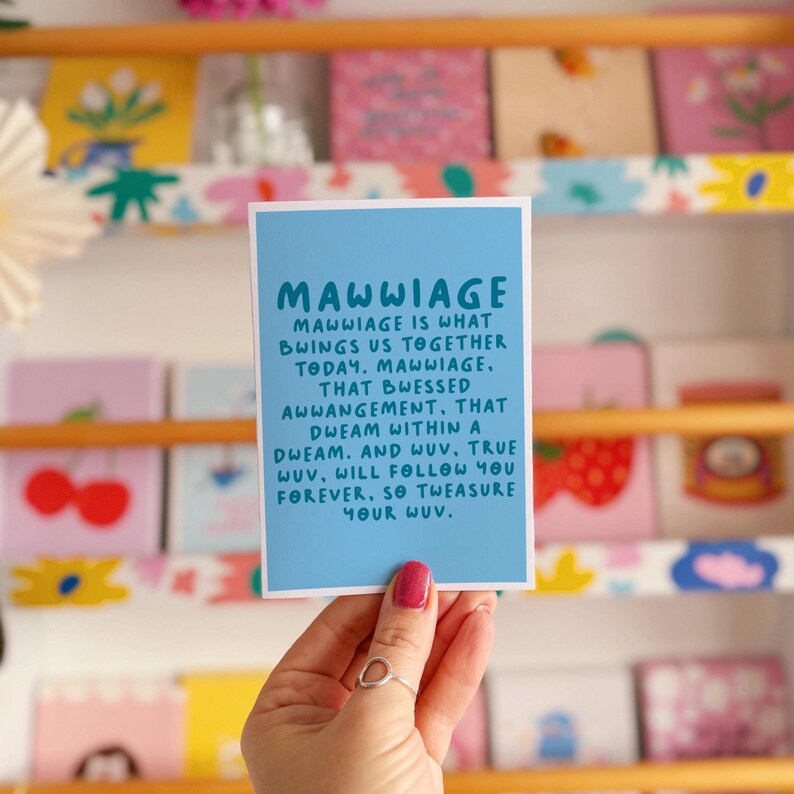 MAWWIAGE
MAWWIAGE IS WHAT
BWINGS US TOGETHER
TODAY. MAWWIAGE,
THAT BWESSED
AWWANGEMENT, THAT
DWEAM WITHIN A
DWEAM. AND WUV, TRUE
WUV, WILL FOLLOW YOU
FOREVER, SO TWEASURE
YOUR WUV.